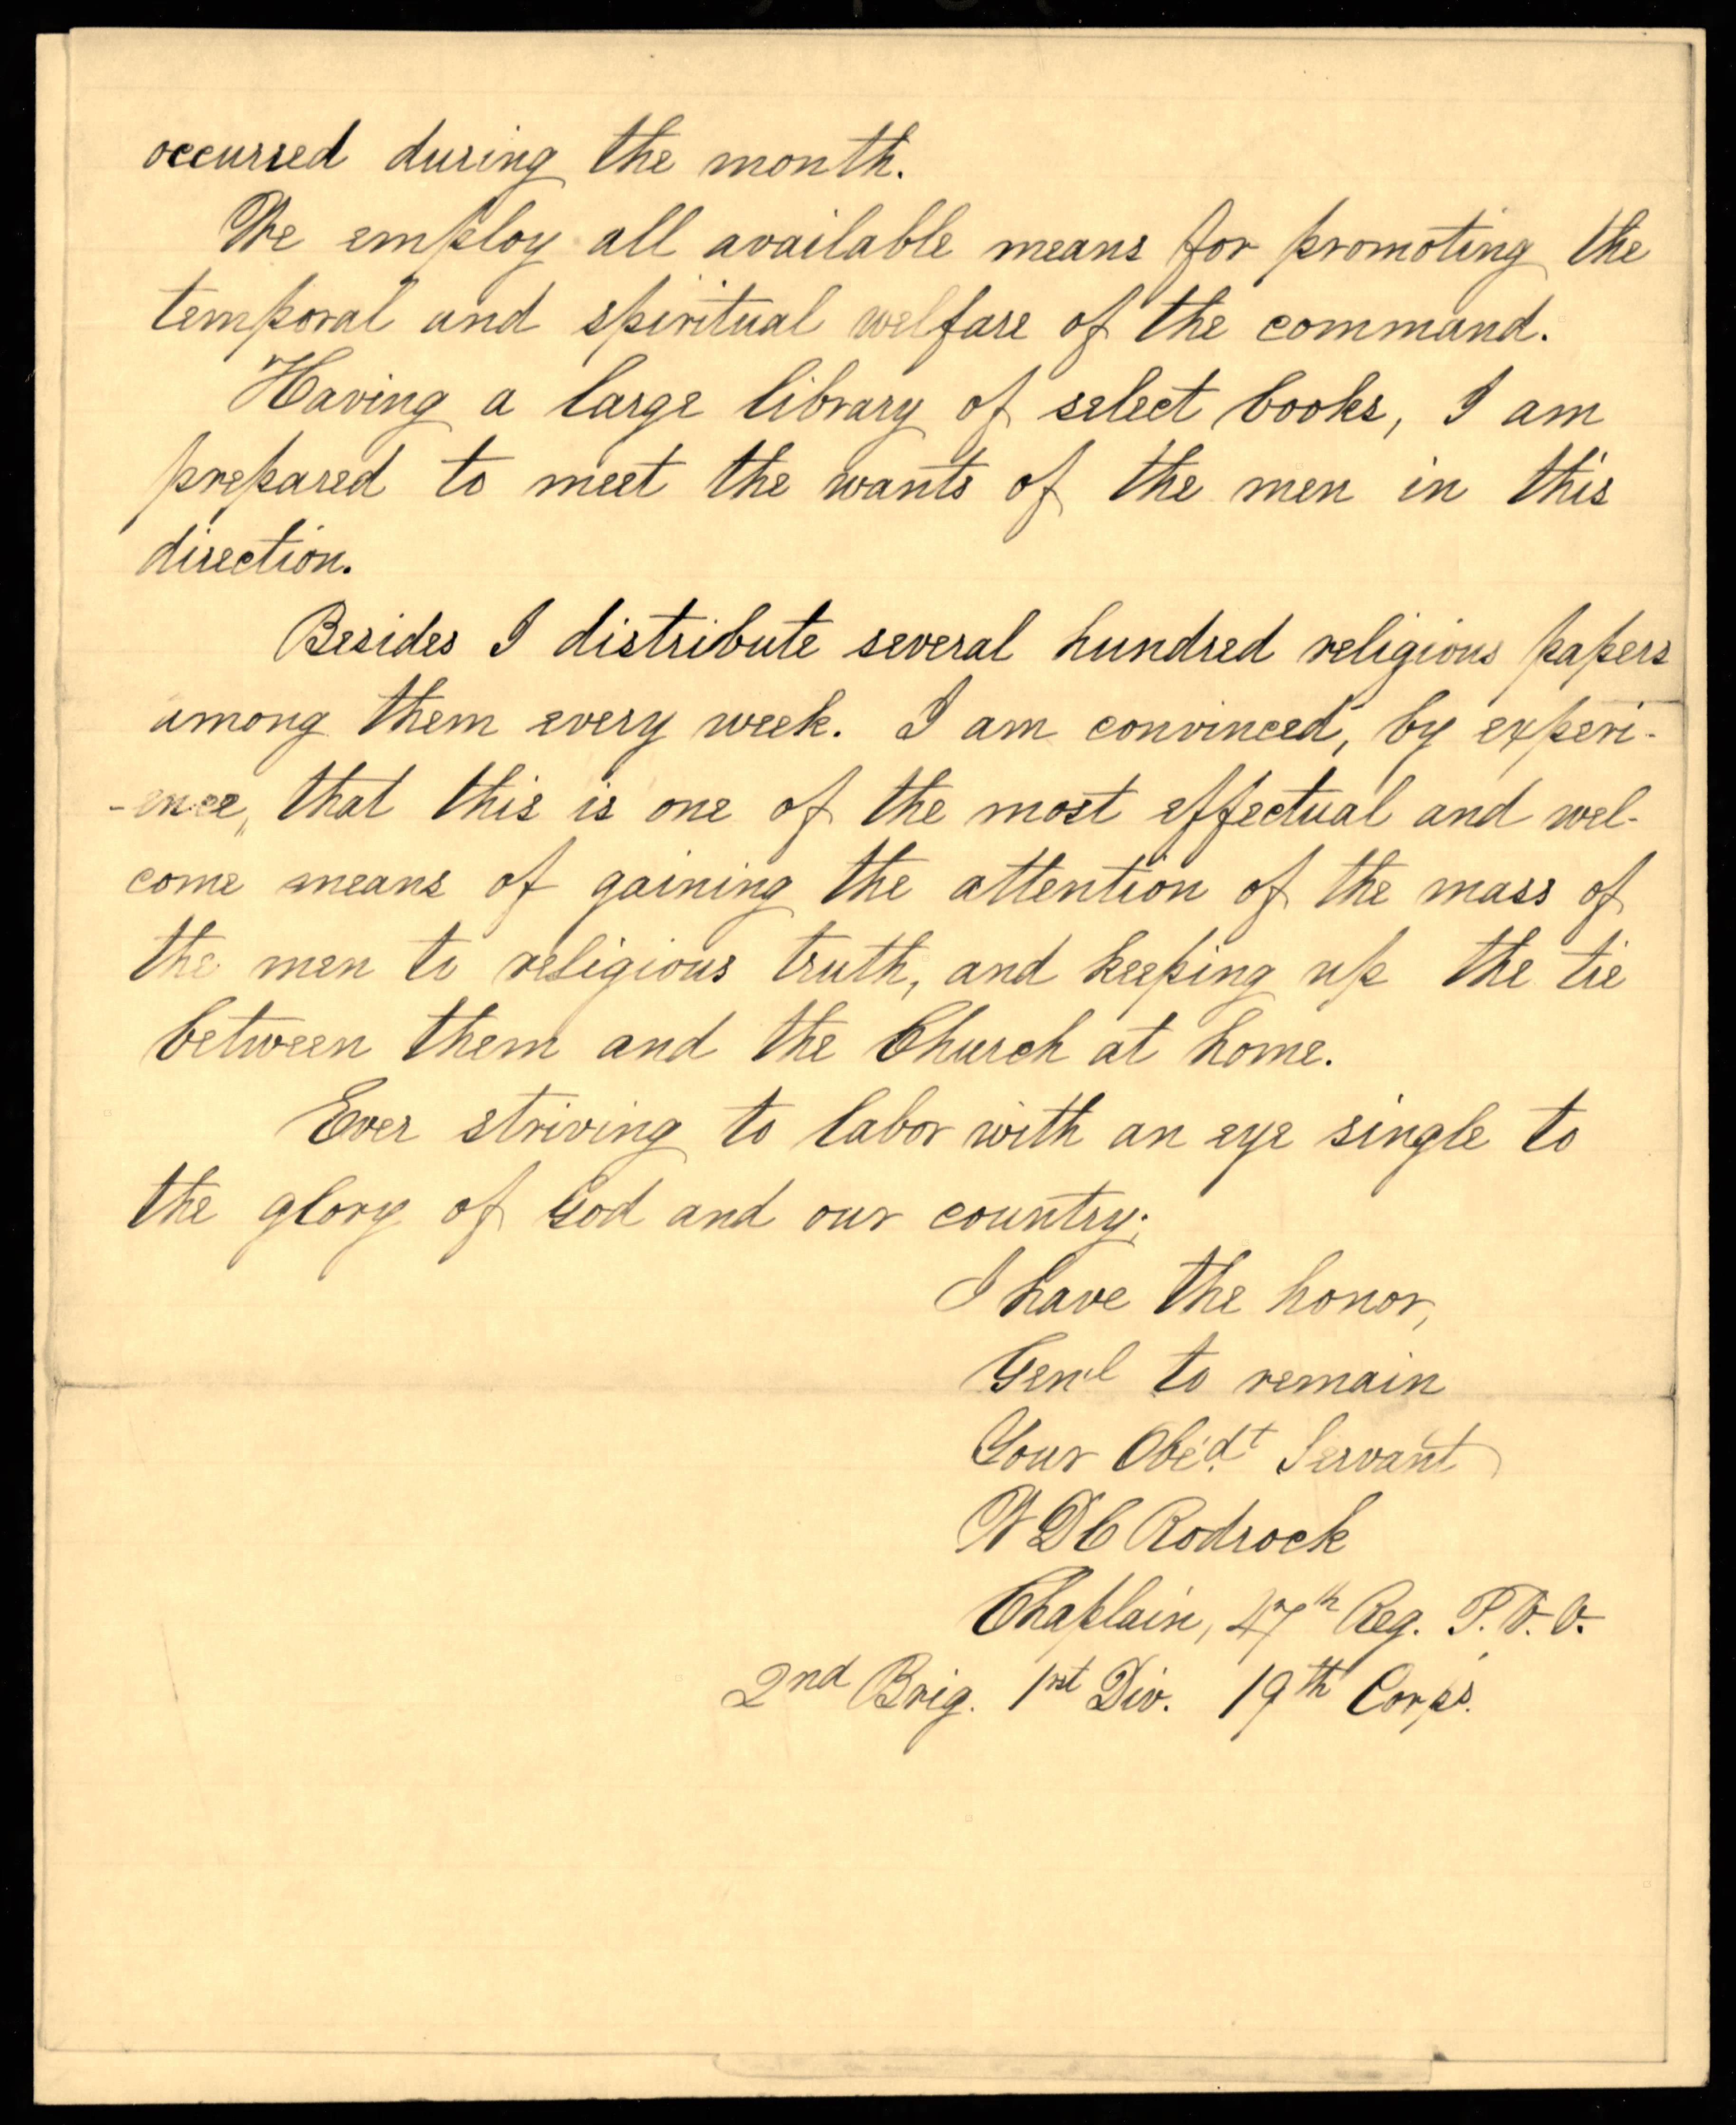 occurred during the month.
We employ all available means for promoting the
temporal and spiritual welfare of the command.
Having a large library of select books, I am
prepared to meet the wants of the men in this
direction.
Besides I distribute several hundred religious papers
among them every week. I am convinced, by experi-
-ence, that this is one of the most effectual and wel-
come means of gaining the attention of the mass of
the men to religious truth, and keeping up the tie
between them and the Church at home.
Ever striving to labor with an eye single to
the glory of God and our country;
I have the honor,
Gen'l to remain
Your Obe'd't Servant
W D C Rodrock
Chaplain, 47th Reg. P. V. V.
2nd Brig. 1rst Div. 19th Corps.